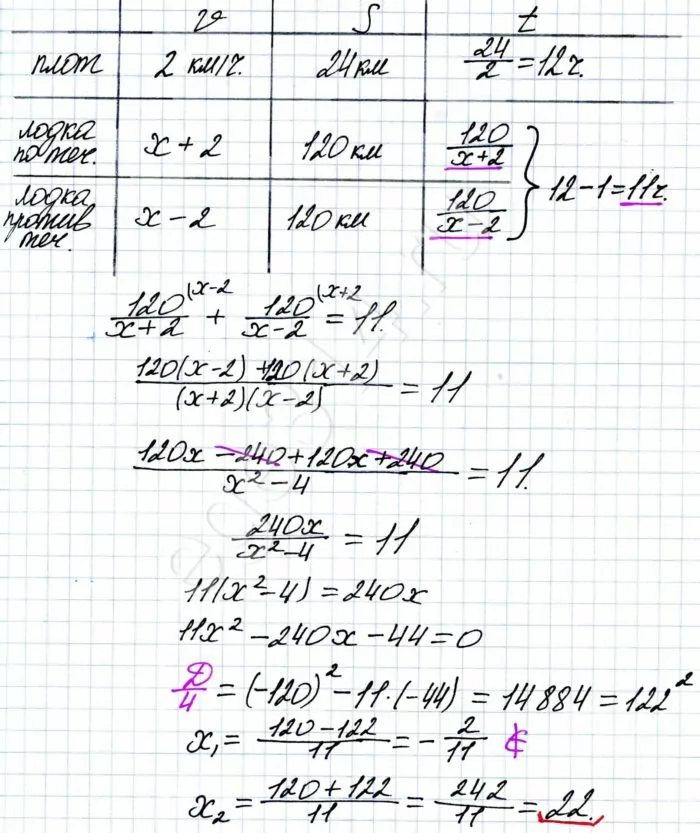 v S t
плот 2 км/ч. 24 км 24/2 = 12 ч.
лодка по теч. x + 2 120 км 120/(x+2)
лодка против теч. x − 2 120 км 120/(x−2) } 12 − 1 = 11 ч.
120/(x+2) (x−2 + 120/(x−2) (x+2 = 11.
(120(x−2) + 120(x+2))/((x+2)(x−2)) = 11
(120x − 240 + 120x + 240)/(x² − 4) = 11.
240x/(x²−4) = 11
11(x²−4) = 240x
11x² − 240x − 44 = 0
D/4 = (−120)² − 11·(−44) = 14884 = 122²
x₁ = (120 − 122)/11 = −2/11
x₂ = (120 + 122)/11 = 242/11 = 22.